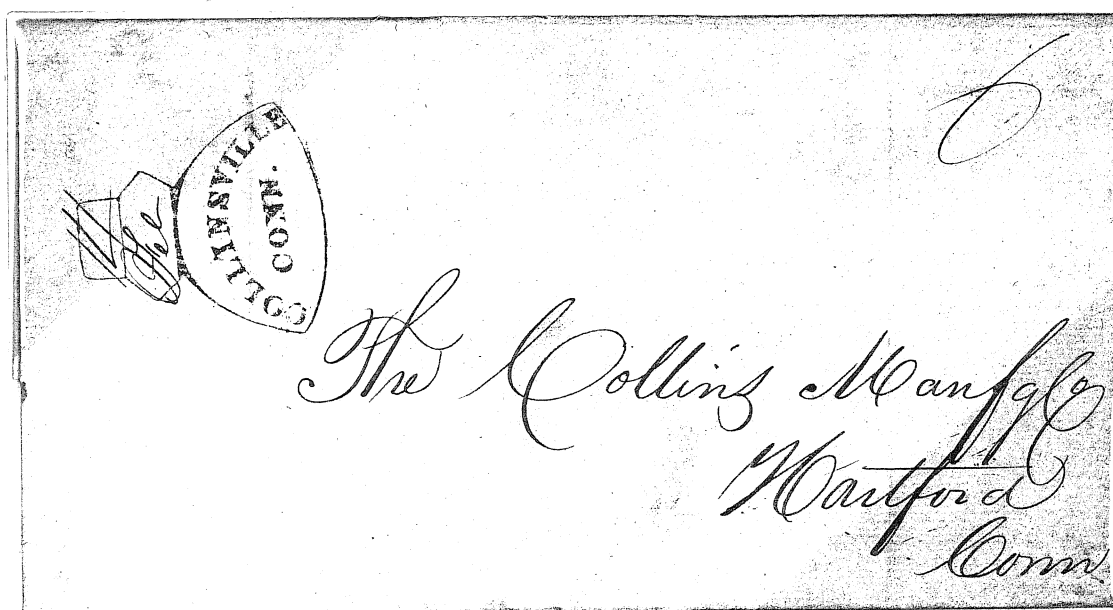 6
COLLINSVILLE
CONN.
The Collins Manfg Co
Hartford
Conn